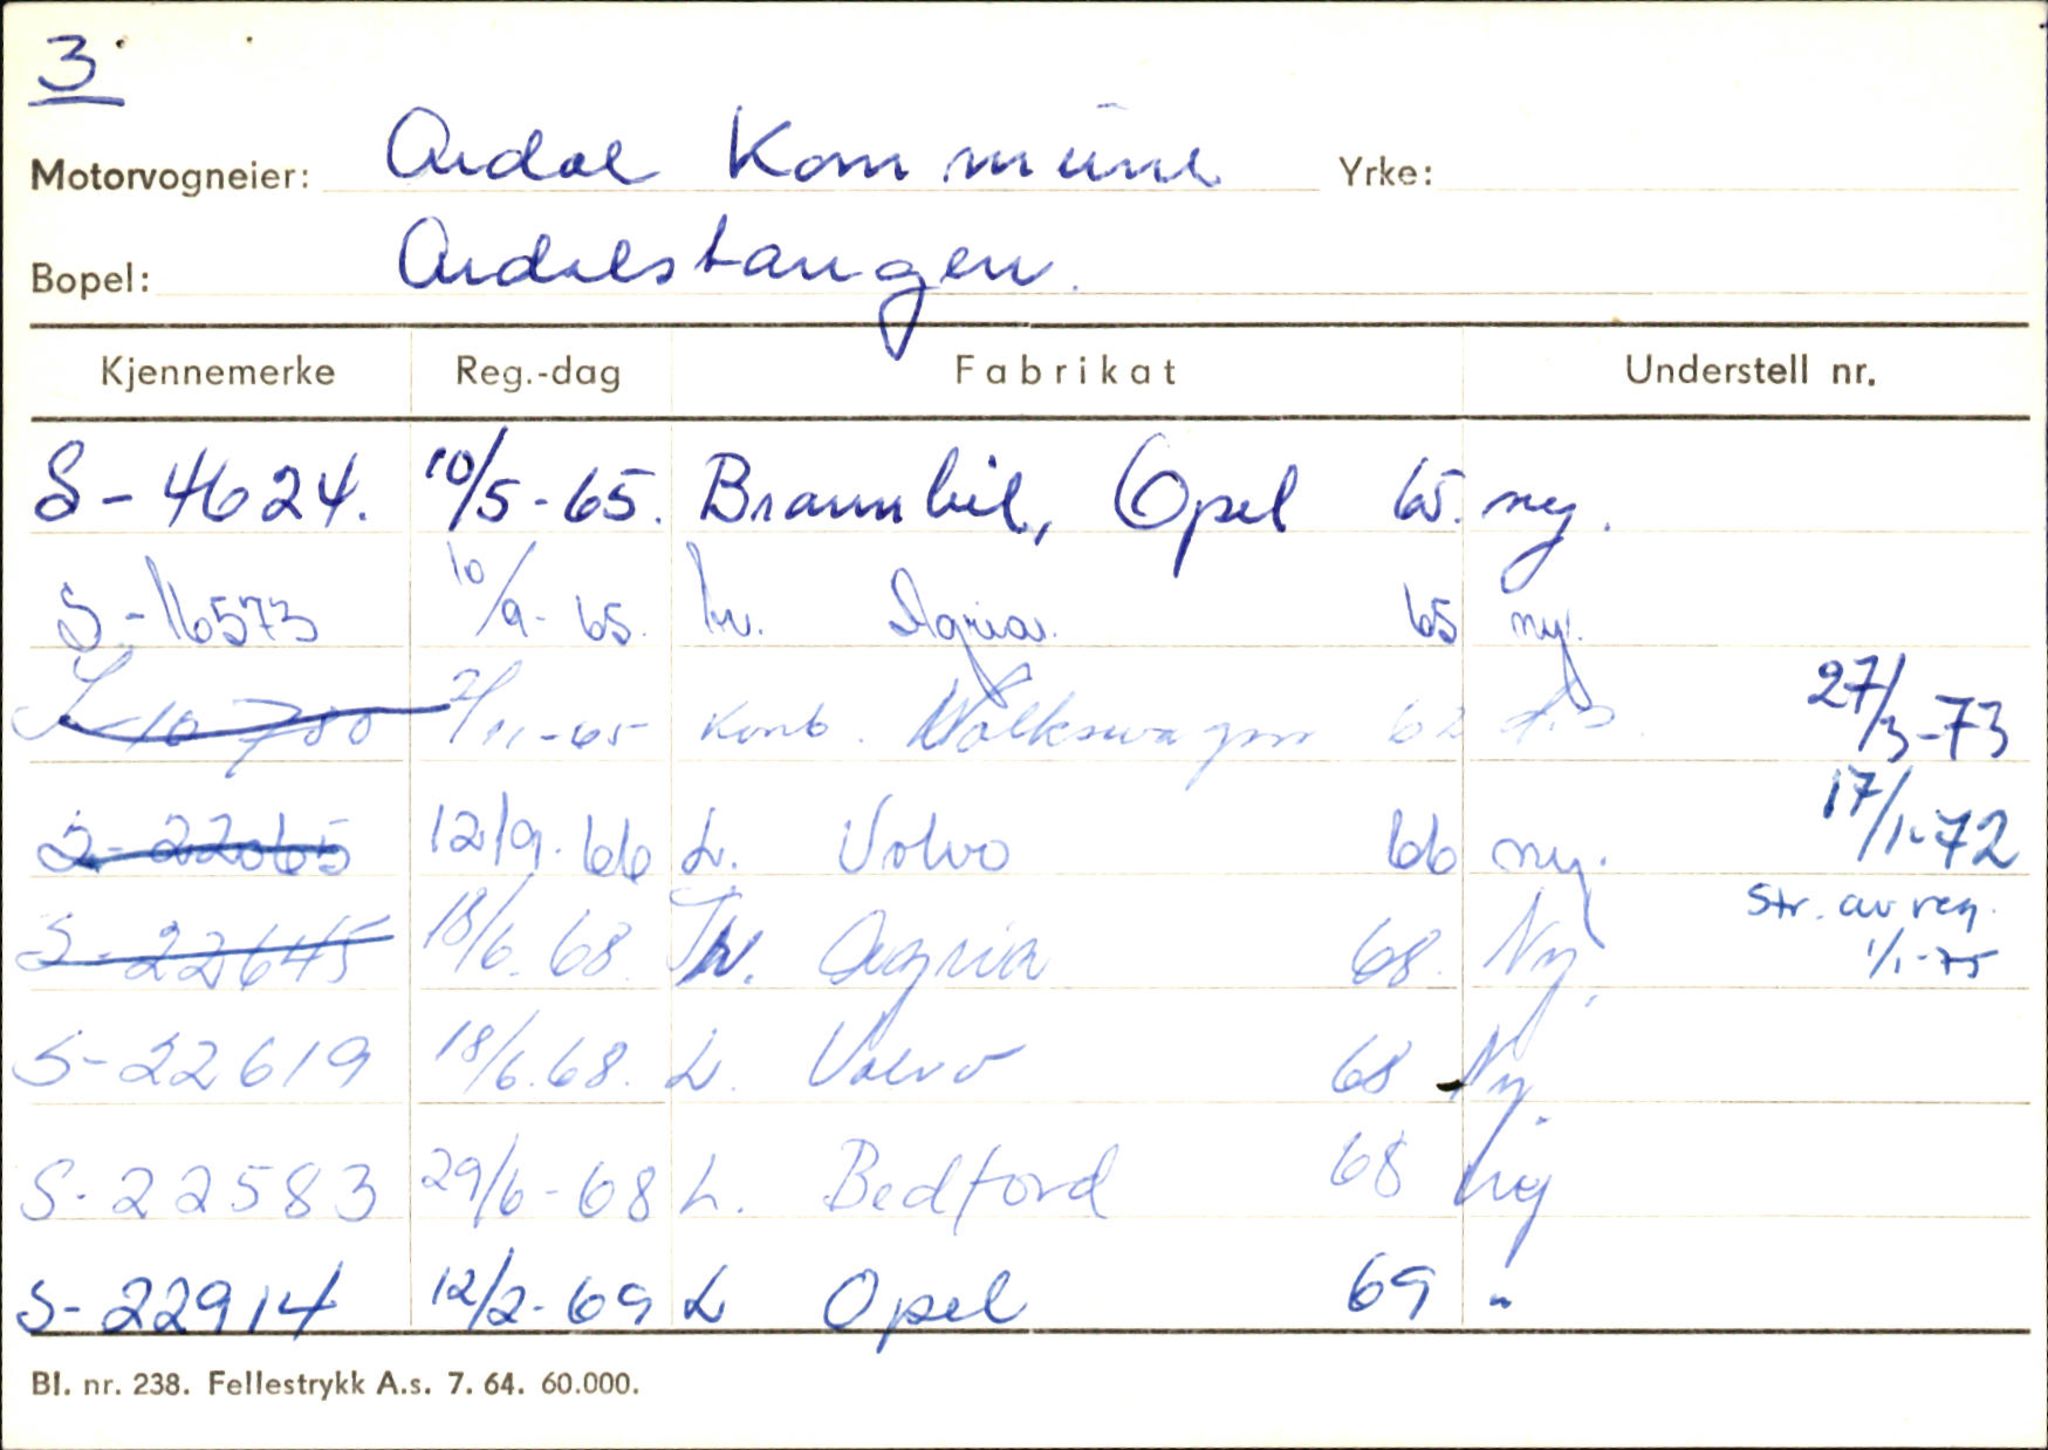 3
Motorvogneier: Årdal Kommune Yrke:
Bopel: Årdalstangen.
Kjennemerke Reg.-dag Fabrikat Understell nr.
S-4624. 10/5-65. Brannbil, Opel 65. ny.
S-16573 10/9-65. tr. Agria. 65 ny.
S-10780 2/11-65 komb. Volkswagen 62 27/3-73
S-22065 12/9-66 L. Volvo 66 ny. 17/1-72
S-22645 18/6.68. Tr. Agria 68. Ny. Str. av reg. 1/1-75
S-22619 18/6.68. L. Volvo 68 Ny.
S-22583 29/6-68 L. Bedford 68 Ny
S-22914 12/2-69 L Opel 69 "
Bl. nr. 238. Fellestrykk A.s. 7. 64. 60.000.